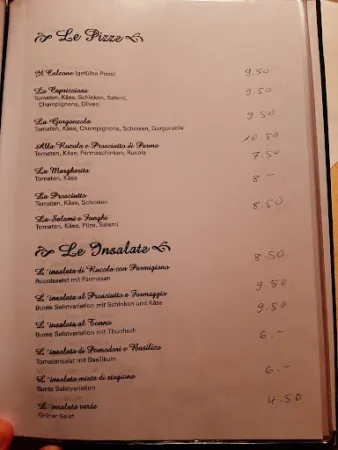 Le Pizze
Il Calzone (gefüllte Pizza) 9.50
La Capricciosa 9.50
Tomaten, Käse, Schinken, Salami,
Champignons, Oliven
La Gorgonzola 9.50
Tomaten, Käse, Champignons, Schinken, Gorgonzola
Alla Rucola e Prosciutto di Parma 10.50
Tomaten, Käse, Parmaschinken, Rucola
7.50
La Margherita
Tomaten, Käse
8.-
La Prosciutto
Tomaten, Käse, Schinken
8.50
La Salami e Funghi
Tomaten, Käse, Pilze, Salami
Le Insalate
8.50
L'insalata di Rucola con Parmigiano
Rucolasalat mit Parmesan
9.50
L'insalata al Prosciutto e Formaggio
Bunte Salatvariation mit Schinken und Käse
9.50
L'insalata al Tonno
Bunte Salatvariation mit Thunfisch
6.-
L'insalata di Pomodori e Basilico
Tomatensalat mit Basilikum
6.-
L'insalata mista di stagione
Bunte Salatvariation
4.50
L'insalata verde
Grüner Salat